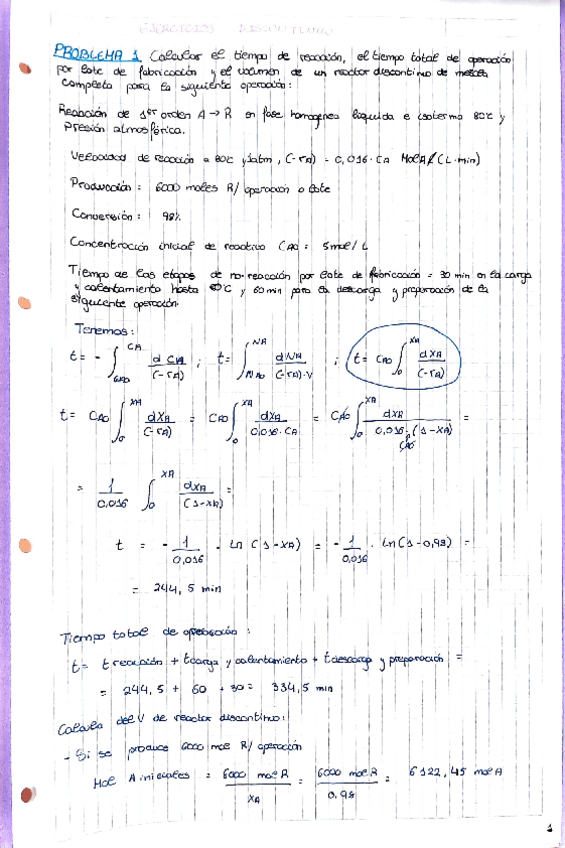 EJERCICIOS DISCONTINUO
PROBLEMA 1 Calcular el tiempo de reacción, el tiempo total de operación
por lote de fabricación y el volumen de un reactor discontinuo de mezcla
completa para la siguiente operación:
Reacción de 1er orden A → R en fase homogénea líquida e isoterma 80ºC y
Presión atmosférica.
Velocidad de reacción a 80ºC y 1atm, (-rA) = 0,016 · CA Mol A/(L·min)
Producción: 6000 moles R/ operación o lote
Conversión: 98%
Concentración inicial de reactivo CA0 = 5mol/L
Tiempo de las etapas de no-reacción por lote de fabricación = 30 min en la carga
y calentamiento hasta 80ºC y 60 min para la descarga y preparación de la
siguiente operación.
Tenemos:
t = - ∫_{CA0}^{CA} d CA / (-rA) ; t = ∫_{NA0}^{NA} dNA / (-rA)·V ; t = CA0 ∫_0^{XA} dXA / (-rA)
t = CA0 ∫_0^{XA} dXA / (-rA) = CA0 ∫_0^{XA} dXA / 0,016 · CA = CA0 ∫_0^{XA} dXA / 0,016 · CA0 (1-XA) =
= 1 / 0,016 ∫_0^{XA} dXA / (1-XA) =
t = - 1 / 0,016 · Ln (1-XA) = - 1 / 0,016 · Ln (1-0,98) =
= 244,5 min
Tiempo total de operación:
t = t reacción + tcarga y calentamiento + tdescarga y preparación =
= 244,5 + 60 + 30 = 334,5 min
Calcula del V de reactor discontinuo:
- Si se produce 6000 mol R/ operación
Mol A iniciales = 6000 mol R / XA = 6000 mol R / 0,98 = 6122,45 mol A
1